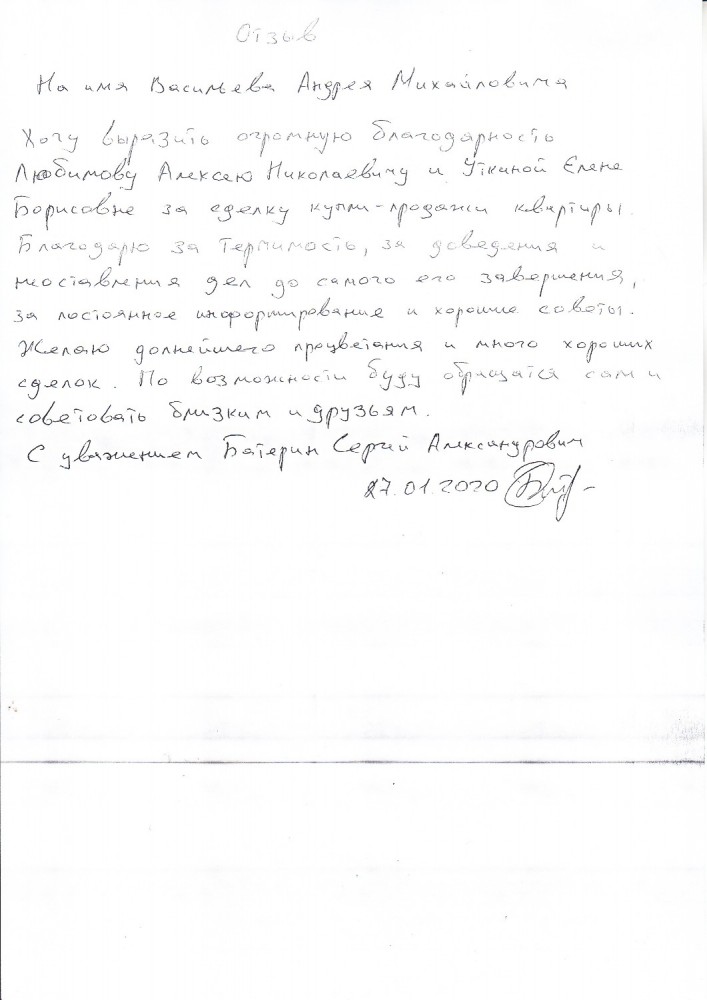 Отзыв
На имя Васильева Андрея Михайловича
Хочу выразить огромную благодарность
Любимову Алексею Николаевичу и Уткиной Елене
Борисовне за сделку купли-продажи квартиры.
Благодарю за терпимость, за доведения и
неоставления дел до самого его завершения,
за постоянное информирование и хорошие советы.
Желаю долнейшего процветания и много хороших
сделок. По возможности буду обращатся сам и
советовать близким и друзьям.
С уважением Батерин Сергей Александрович
27.01.2020